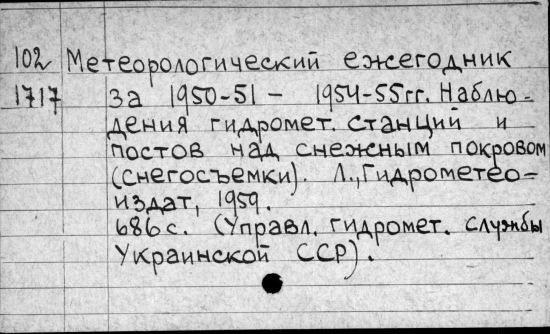 102 Метеорологический ежегодник
1717 за 1950-51 - 1954-55гг. Наблю-
дения гидромет. станций и
постов над снежным покровом
(снегосъемки). Л., Гидрометео-
издат, 1959.
686с. (Управл. гидромет. службы
Украинской ССР).